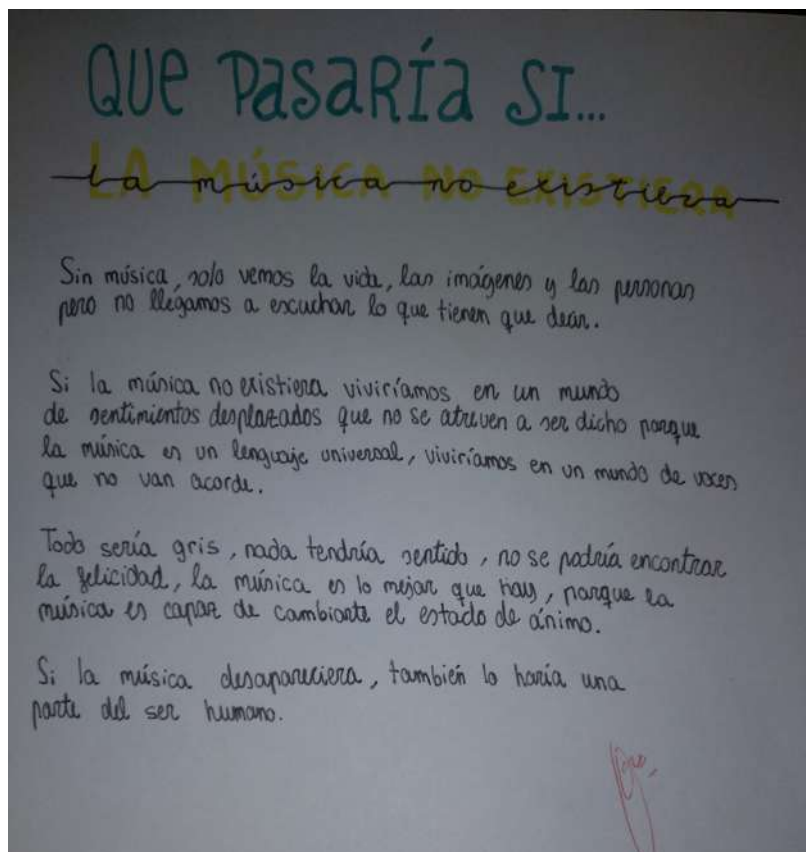 QUE PASARÍA SI...
LA MÚSICA NO EXISTIERA
la música no existiera
Sin música, solo vemos la vida, las imágenes y las personas
pero no llegamos a escuchar lo que tienen que decir.
Si la música no existiera viviríamos en un mundo
de sentimientos desplazados que no se atreven a ser dicho porque
la música es un lenguaje universal, viviríamos en un mundo de voces
que no van acorde.
Todo sería gris, nada tendría sentido, no se podría encontrar
la felicidad, la música es lo mejor que hay, porque la
música es capaz de cambiarte el estado de ánimo.
Si la música desapareciera, también lo haría una
parte del ser humano.